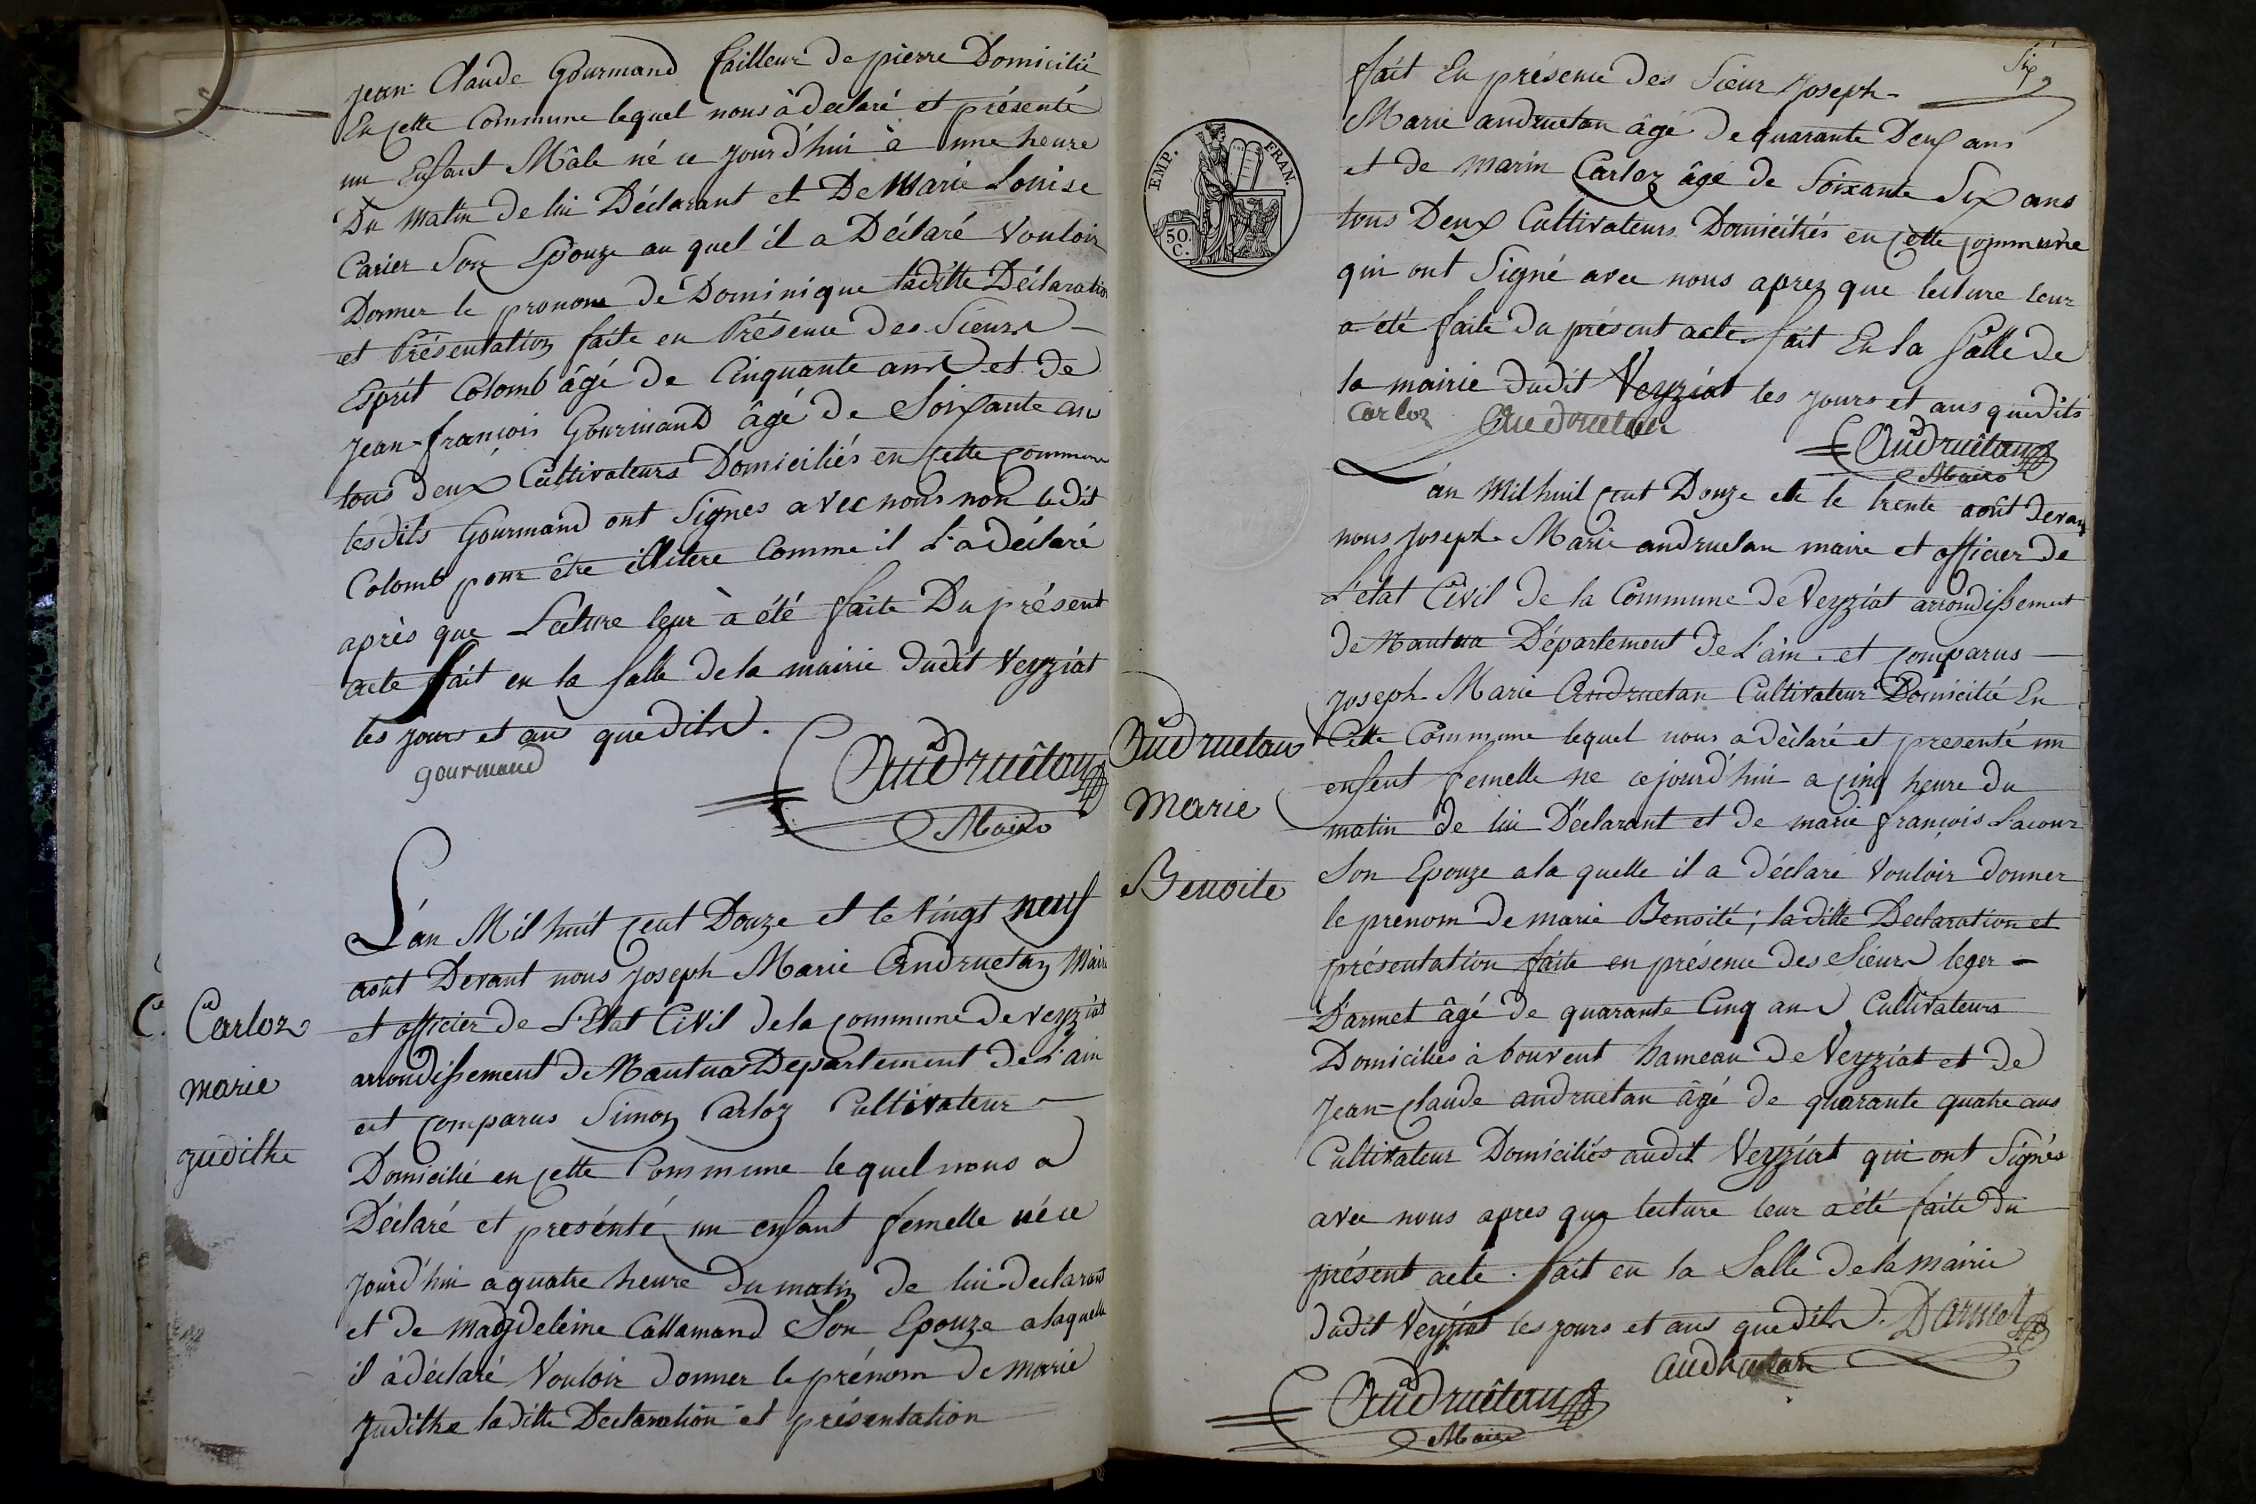 jean Claude Gourmand tailleur de pierre Domicilié
En cette Commune lequel nous à déclaré et présenté
un Enfant Mâle né ce jourd'hui à une heure
Du Matin de lui Déclarant et De Marie Louise
Carier Son Epouze au quel il a Déclaré Vouloir
Donner le pronom de Dominique laditte Déclaration
et Présentation faite en Présence des Sieurs
Esprit Colomb âgé de Cinquante ans et de
jean-françois Gourmand âgé de Soixante ans
tous deux Cultivateurs Domiciliés en cette commune
lesdits Gourmand ont Signes avec nous non ledit
Colomb pour être illitere Comme il L'a déclaré
après que Lecture leur à été faite Du présent
acte fait en la salle de la mairie dudit Veyziat
les jours et ans quedits.
gourmand
Andruétan
Maire
L'an Mil huit cent Douze et le Vingt neuf
août Devant nous joseph Marie Andruetan Maire
et officier de L'Etat Civil de la commune de veyziat
arrondissement de Nantua Departement de L'ain
est comparus Simon Carloz Cultivateur
Domicilié en cette Commune lequel nous a
Déclaré et presénté un enfant femelle née ce
jourd'hui a quatre heure du matin de lui declarant
et de magdeleine Callamand Son Epouze a laquelle
il à déclaré Vouloir donner le prénom de marie
judithe ladille Declaration et présentation
Carloz
marie
judithe
Six
fait En présence des Sieur joseph
Marie andruetan âgé de quarante Deux ans
et de marin Carloz âgé de Soixante Six ans
tous Deux Cultivateurs Domiciliés en cette commune
qui ont Signé avec nous aprez que lecture leur
a été faite du présent acte fait En la Salle de
la mairie dudit Veyziat les jours et ans quedits
Carloz Andruetan
Andruétan
Maire
L'an Mil huit cent Douze et le trente août devant
nous joseph Marie andruetan maire et officier de
L'etat Civil de la Commune de Veyziat arrondissement
de Nantua Département de L'ain et comparus
joseph Marie Andruetan Cultivateur Domicilié En
Cette Commune lequel nous a déclaré et presenté un
enfent femelle ne ce jourd'hui a cinq heure du
matin de lui Déclarant et de marie françois Lacour
Son Epouze a la quelle il a déclaré Vouloir donner
le prenom de marie Benoité; la ditte Declaration et
présentation faite en présence des Sieurs leger
Darmet âgé de quarante Cinq ans Cultivateurs
Domiciliés à bouvent hameau de Veyziat et de
jean-claude andruetan âgé de quarante quatre ans
Cultivateur Domiciliés audit Veyziat qui ont Signés
avec nous apres que lecture leur a été faite du
présent acte. fait en la Salle de la mairie
dudit Veyziat les jours et ans quedits. Darmet
andruetan
Andruétan
Maire
Andruetan
Marie
Benoite
EMP. FRAN.
50 C.